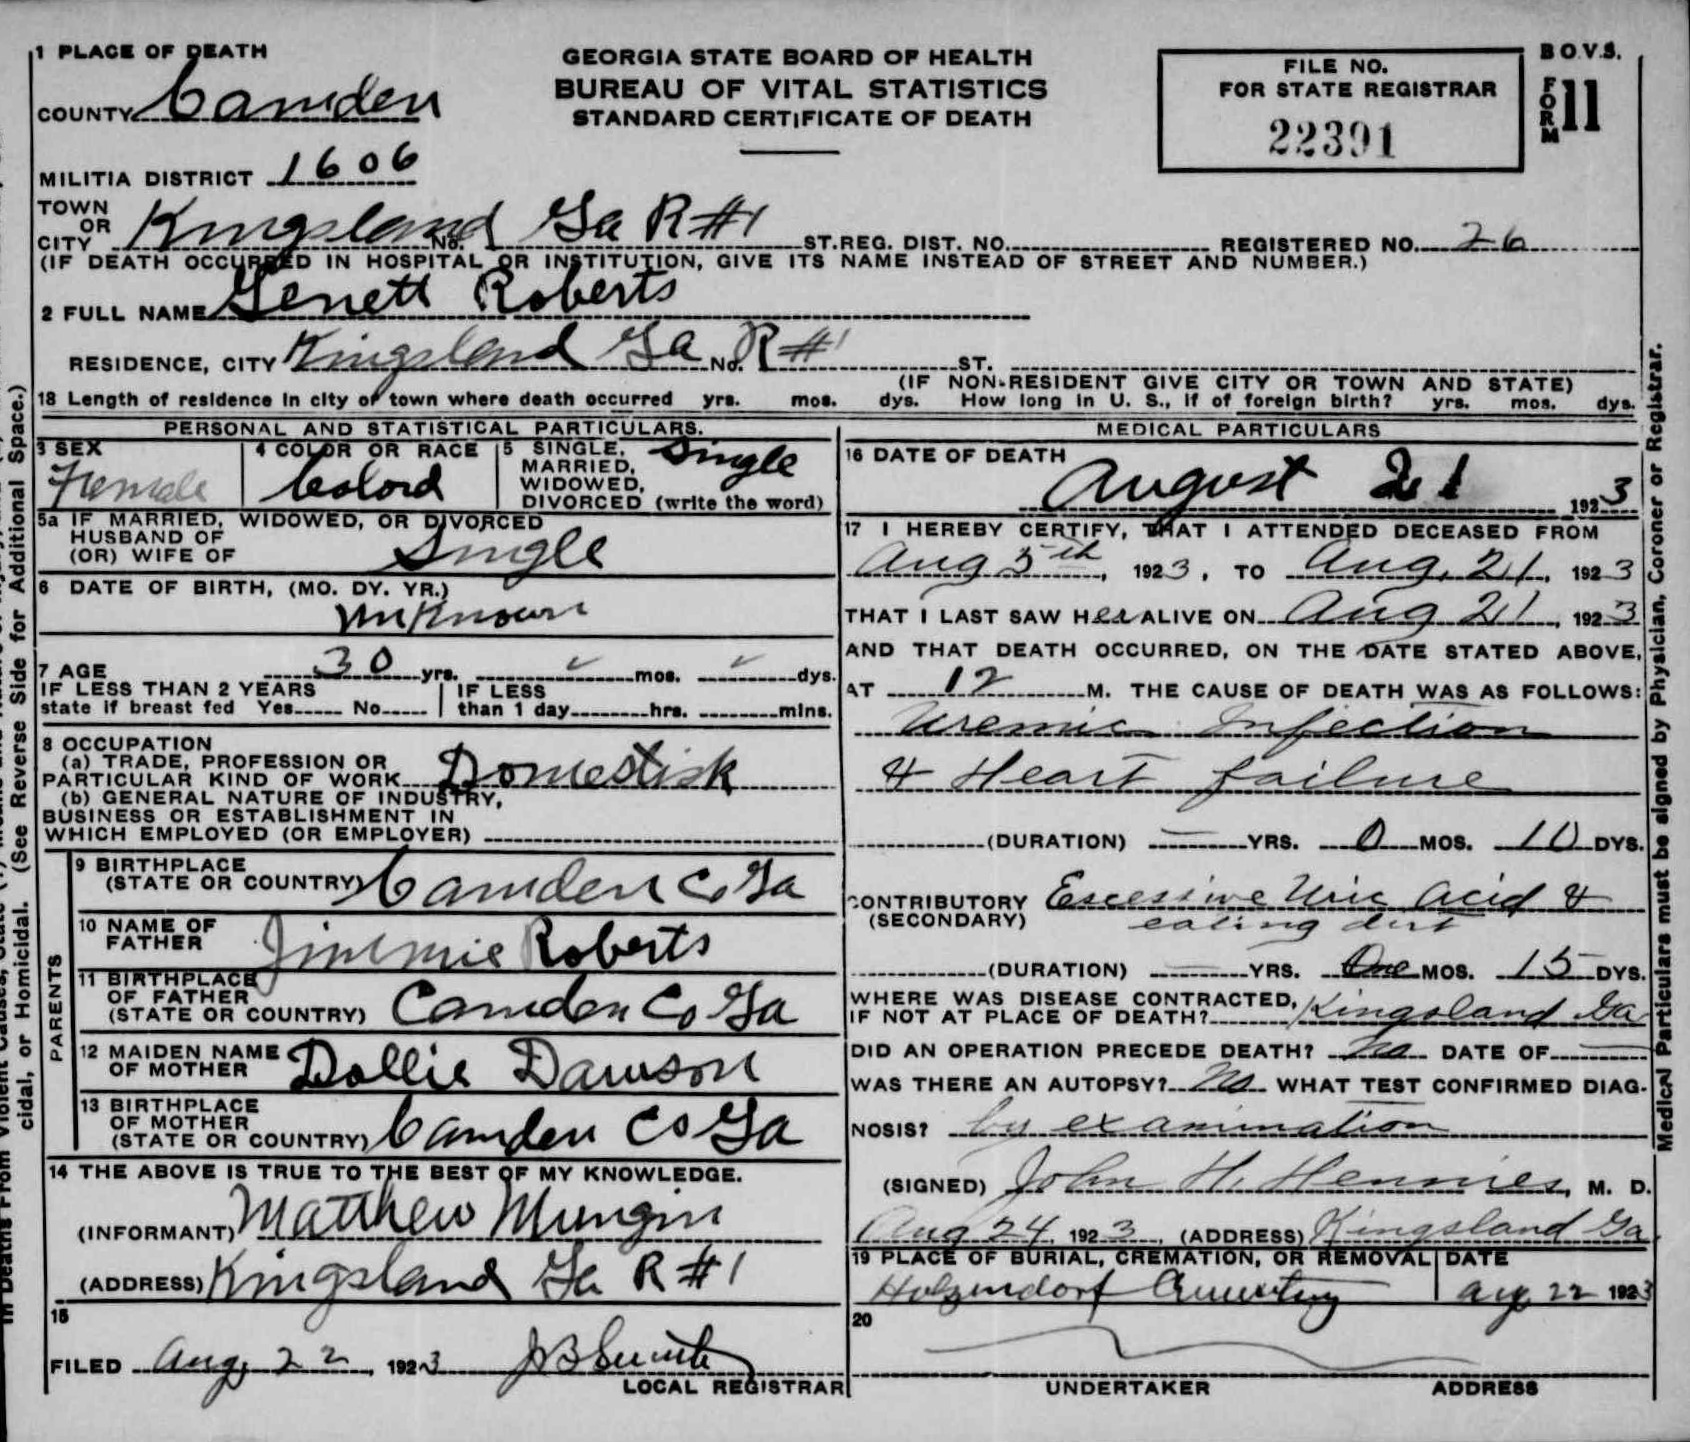 1 PLACE OF DEATH
COUNTY Camden
MILITIA DISTRICT 1606
TOWN OR CITY Kingsland Ga R#1 No. ST. REG. DIST. NO. REGISTERED NO. 26
(IF DEATH OCCURRED IN HOSPITAL OR INSTITUTION, GIVE ITS NAME INSTEAD OF STREET AND NUMBER.)
GEORGIA STATE BOARD OF HEALTH
BUREAU OF VITAL STATISTICS
STANDARD CERTIFICATE OF DEATH
FILE NO.
FOR STATE REGISTRAR
22391
B.O.V.S.
FORM 11
2 FULL NAME Genett Roberts
RESIDENCE, CITY Kingsland Ga No. R#1 ST.
(IF NON-RESIDENT GIVE CITY OR TOWN AND STATE)
18 Length of residence in city or town where death occurred yrs. mos. dys. How long in U. S., if of foreign birth? yrs. mos. dys.
PERSONAL AND STATISTICAL PARTICULARS.
3 SEX
Female
4 COLOR OR RACE
Colord
5 SINGLE,
MARRIED,
WIDOWED,
DIVORCED (write the word)
Single
5a IF MARRIED, WIDOWED, OR DIVORCED
HUSBAND OF
(OR) WIFE OF
Single
6 DATE OF BIRTH, (MO. DY. YR.)
unKnown
7 AGE 30 yrs. mos. dys.
IF LESS THAN 2 YEARS
state if breast fed Yes No
IF LESS
than 1 day hrs. mins.
8 OCCUPATION
(a) TRADE, PROFESSION OR
PARTICULAR KIND OF WORK Domestisk
(b) GENERAL NATURE OF INDUSTRY,
BUSINESS OR ESTABLISHMENT IN
WHICH EMPLOYED (OR EMPLOYER)
PARENTS
9 BIRTHPLACE
(STATE OR COUNTRY) Camden Co Ga
10 NAME OF
FATHER Jimmie Roberts
11 BIRTHPLACE
OF FATHER
(STATE OR COUNTRY) Camden Co Ga
12 MAIDEN NAME
OF MOTHER Dollie Dawson
13 BIRTHPLACE
OF MOTHER
(STATE OR COUNTRY) Camden Co Ga
14 THE ABOVE IS TRUE TO THE BEST OF MY KNOWLEDGE.
(INFORMANT) Matthew Mungin
(ADDRESS) Kingsland Ga R#1
15
FILED Aug, 22, 1923 J B Smith
LOCAL REGISTRAR
MEDICAL PARTICULARS
16 DATE OF DEATH
August 21 1923
17 I HEREBY CERTIFY, THAT I ATTENDED DECEASED FROM
Aug 5th, 1923, TO Aug, 21, 1923
THAT I LAST SAW Her ALIVE ON Aug 21, 1923
AND THAT DEATH OCCURRED, ON THE DATE STATED ABOVE,
AT 12 M. THE CAUSE OF DEATH WAS AS FOLLOWS:
Uremic Infection
& Heart failure
(DURATION) YRS. 0 MOS. 10 DYS.
CONTRIBUTORY Escessive Uric Acid &
(SECONDARY) eating dirt
(DURATION) YRS. One MOS. 15 DYS.
WHERE WAS DISEASE CONTRACTED,
IF NOT AT PLACE OF DEATH? Kingsland Ga
DID AN OPERATION PRECEDE DEATH? No DATE OF
WAS THERE AN AUTOPSY? No WHAT TEST CONFIRMED DIAG-
NOSIS? by examination
(SIGNED) John H. Hennies, M. D.
Aug 24, 1923, (ADDRESS) Kingsland Ga
19 PLACE OF BURIAL, CREMATION, OR REMOVAL DATE
Holzendorf Cemetery Aug 22 1923
20
UNDERTAKER ADDRESS
Medical Particulars must be signed by Physician, Coroner or Registrar.
cidal, or Homicidal. (See Reverse Side for Additional Space.)